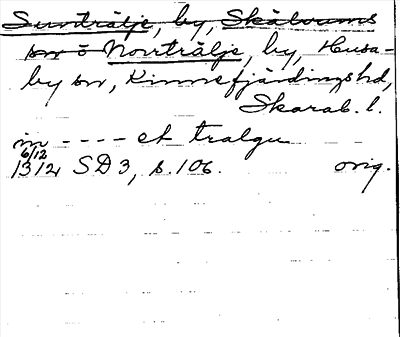 Surträlje, by, Skälvums
sn o Norrträlje, by, Husa-
by sn, Kinnefjärdingshd,
Skarab. l.
in - - - - et tralgu
6/12
1312 SD 3, s. 106. orig.